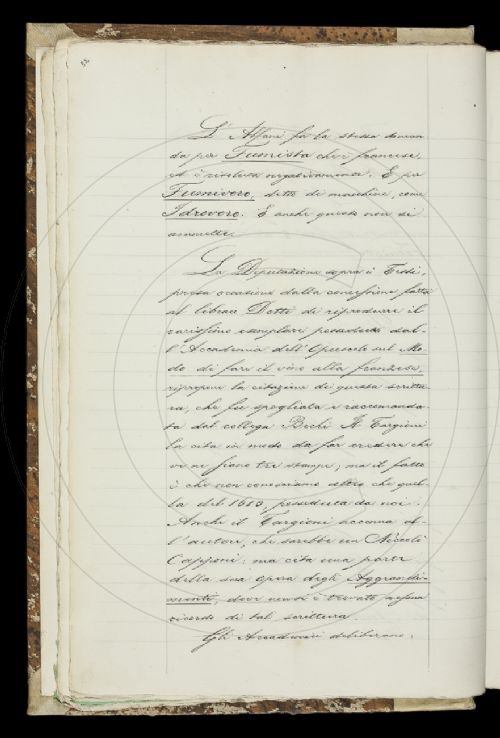 L'Alfani fa la stessa doman
da per Fumista che è francese,
ed è risoluta negativamente. E per
Fumivoro, detto di macchine, come
Idrovoro. E anche questo non si
ammette.
La Deputazione sopra i Testi,
presa occasione dalla concessione fatta
al libraio Dotti di riprodurre il
rarissimo esemplare posseduto dal-
l'Accademia dell'Opuscolo sul Mo-
do di fare il vino alla francese,
ripropone la citazione di questa scrittu
ra, che fu spogliata e raccomanda-
ta dal collega Bechi. Il Targioni
la cita in modo da far credere che
ve ne siano tre stampe; ma il fatto
è che non conosciamo altro che quel-
la del 1610, posseduta da noi.
Anche il Targioni accenna al-
l'autore, che sarebbe un Niccolò
Capponi: ma cita una parte
della sua opera degli Aggrandi-
menti, dove non si è trovato nessun
ricordo di tal scrittura.
Gli Accademici deliberano,